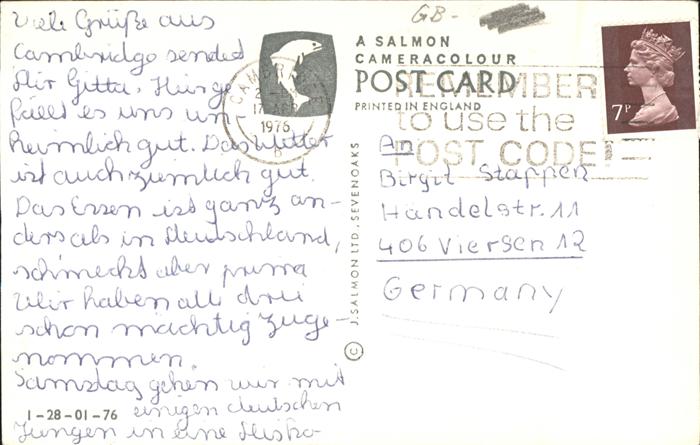 Viele Grüße aus
Cambridge sendet
Dir Gitta. Hier ge-
fällt es uns un-
heimlich gut. Das Wetter
ist auch ziemlich gut.
Das Essen ist ganz an-
ders als in Deutschland,
schmeckt aber prima
Wir haben alle drei
schon mächtig zuge-
nommen.
Samstag gehen wir mit
einigen deutschen
Jungen in eine Disko-
1-28-01-76
GB-
A SALMON
CAMERACOLOUR
POST CARD
PRINTED IN ENGLAND
© J. SALMON LTD., SEVENOAKS
CAMBRIDGE
17 APR
1976
REMEMBER
to use the
POST CODE
7P
An
Birgit Stappen
Händelstr. 11
406 Viersen 12
Germany